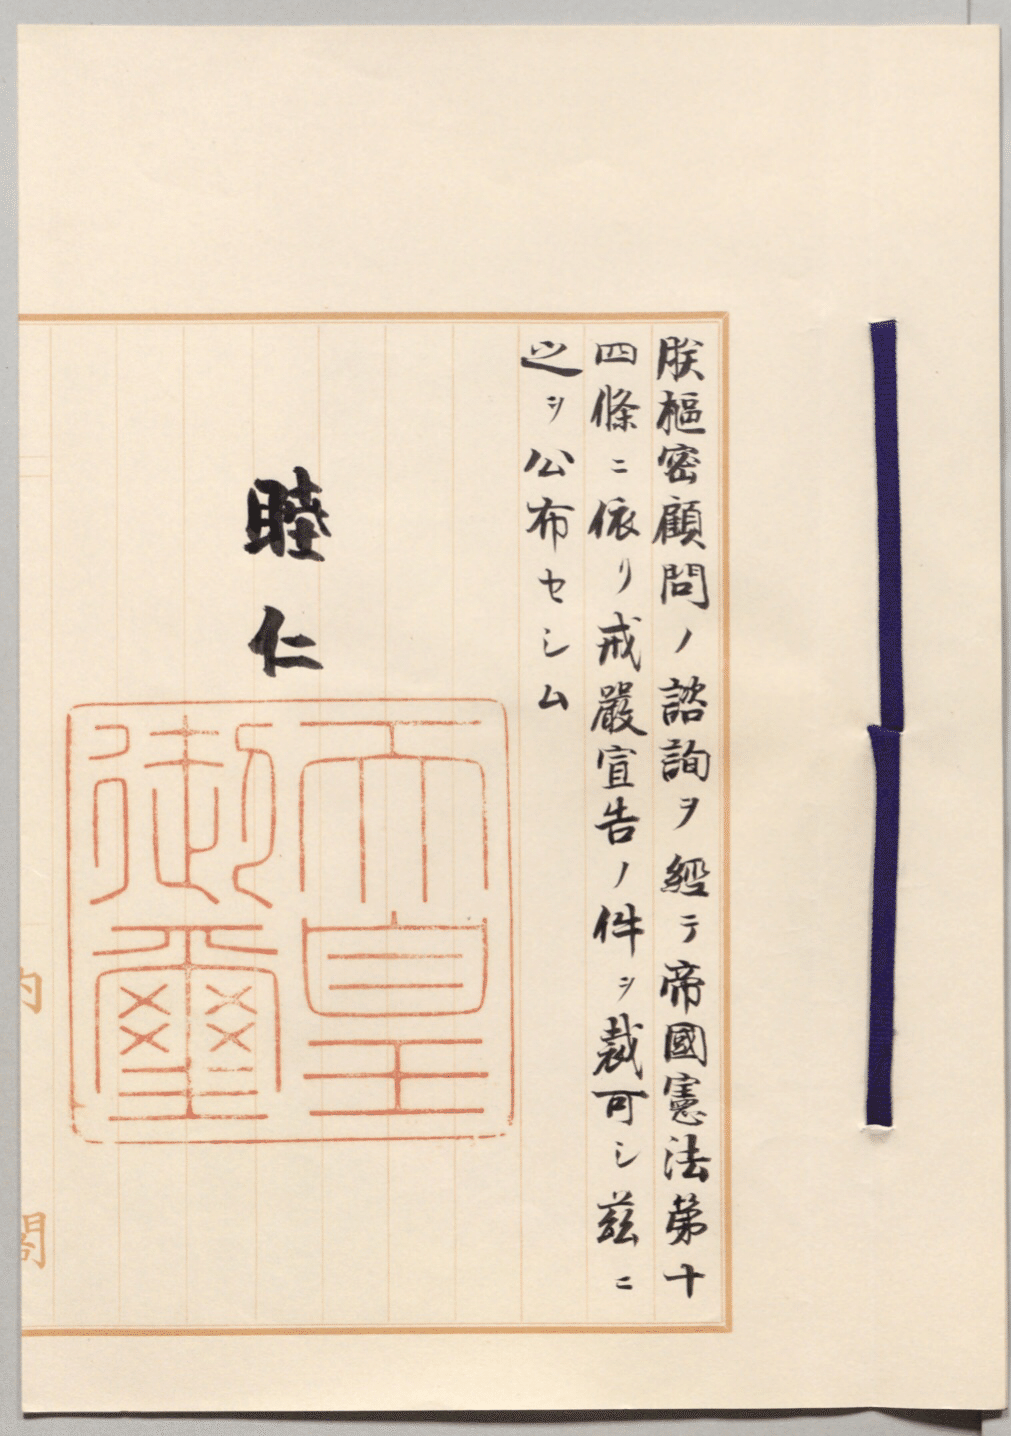 朕樞密顧問ノ諮詢ヲ經テ帝國憲法第十
四條ニ依リ戒嚴宣告ノ件ヲ裁可シ茲ニ
之ヲ公布セシム
睦仁
天皇
御璽
内閣